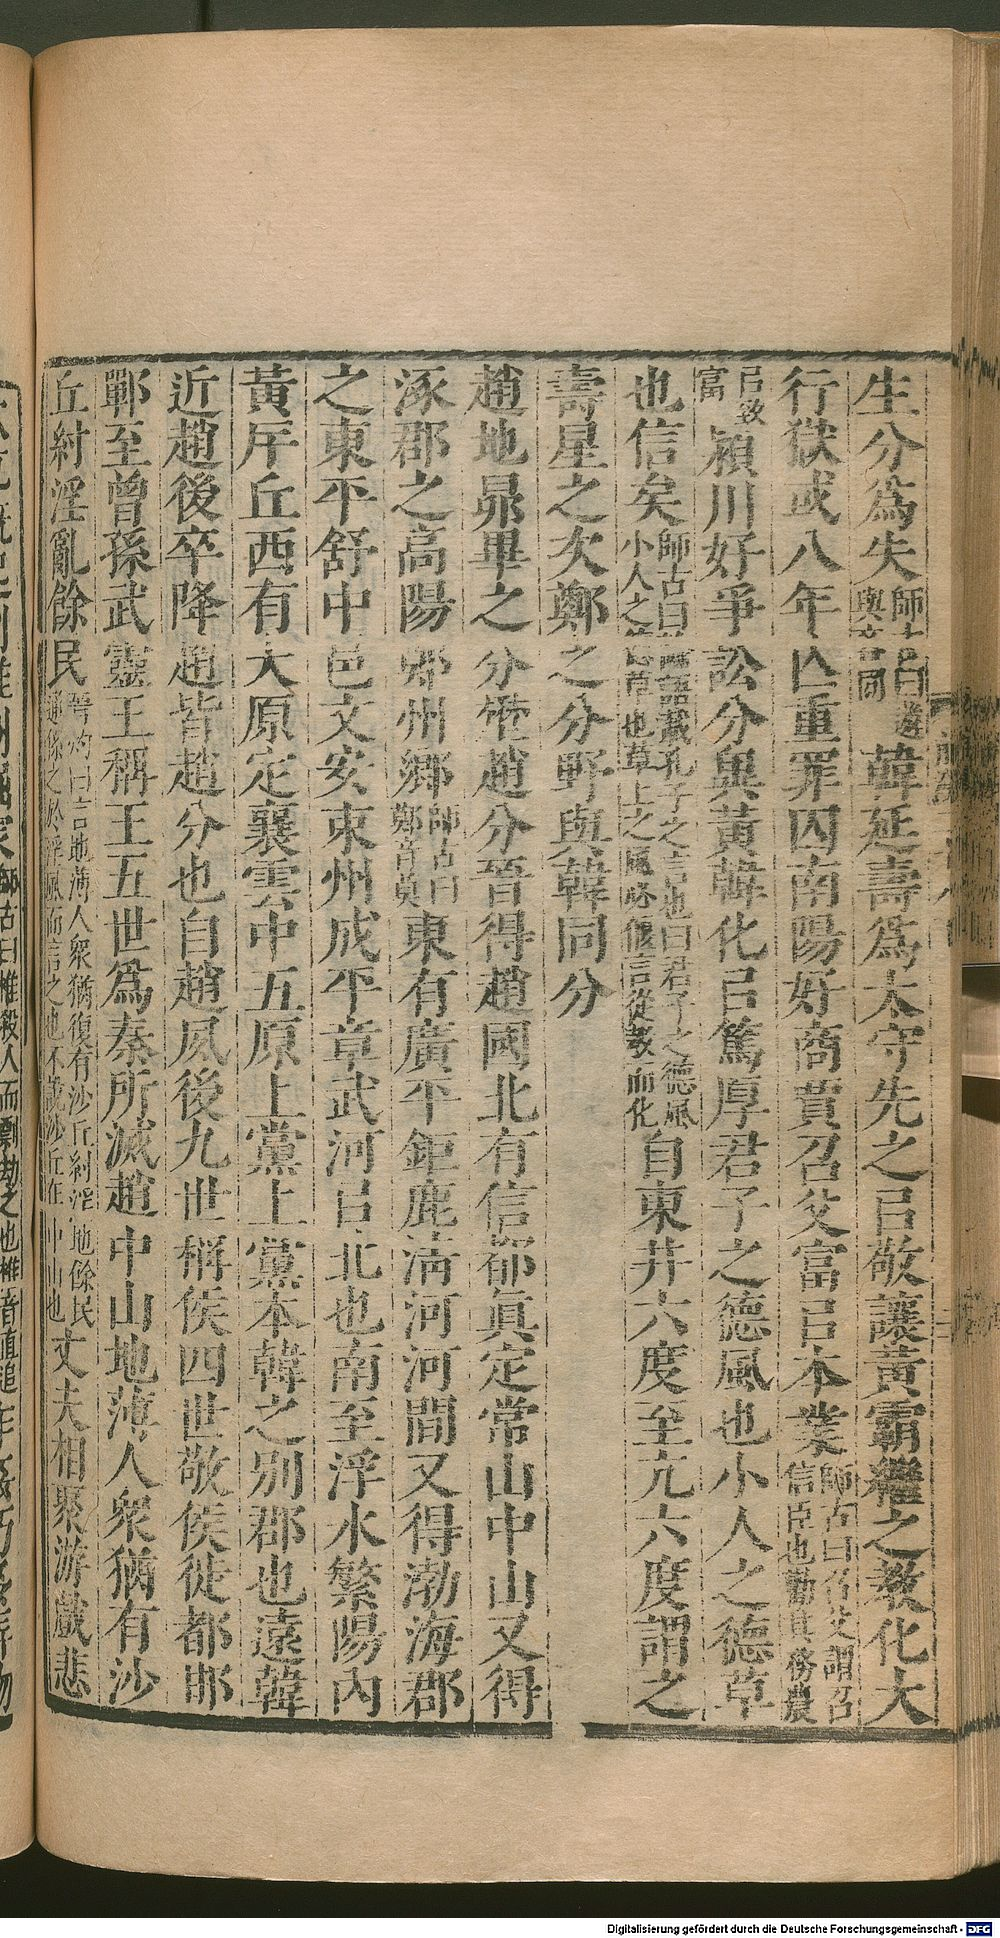 生分為失師古曰遴與吝同韓延壽為太守先之㠯敬讓黃霸繼之教化大
行獄或八年亾重罪囚南陽好商賈召父富㠯本業師古曰召父謂召信臣也勸其務農
㠯致富潁川好爭訟分異黃韓化㠯篤厚君子之德風也小人之德草
也信矣師古曰論語載孔子之言也曰君子之德風小人之德草也草上之風必偃言從教而化自東井六度至亢六度謂之
壽星之次鄭之分野與韓同分
趙地昴畢之分壄趙分晉得趙國北有信都眞定常山中山又得
涿郡之高陽鄚州鄉師古曰鄚音莫東有廣平鉅鹿清河河間又得渤海郡
之東平舒中邑文安束州成平章武河㠯北也南至浮水繁陽內
黃斥丘西有太原定襄雲中五原上黨上黨本韓之別郡也遠韓
近趙後卒降趙皆趙分也自趙夙後九世稱侯四世敬侯徙都邯
鄲至曾孫武靈王稱王五世爲秦所滅趙中山地薄人衆猶有沙
丘紂淫亂餘民晉灼曰言地薄人衆猶復有沙丘紂淫地餘民通係之於淫風而言之也不說沙丘在中山也丈夫相聚游戲悲
師古曰椎殺人而剽劫之也椎音直追
Digitalisierung gefördert durch die Deutsche Forschungsgemeinschaft - DFG